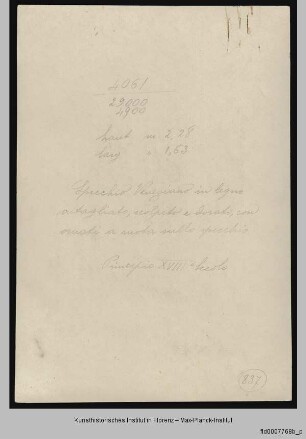 2061
29000
4900
haut m 2,28
larg " 1,63
Specchio Veneziano in legno
intagliato, scolpito e dorato, con
ornati a ruota sullo specchio
Principio XVIII Secolo
837
Kunsthistorisches Institut in Florenz – Max-Planck-Institut
fld0007768b_p